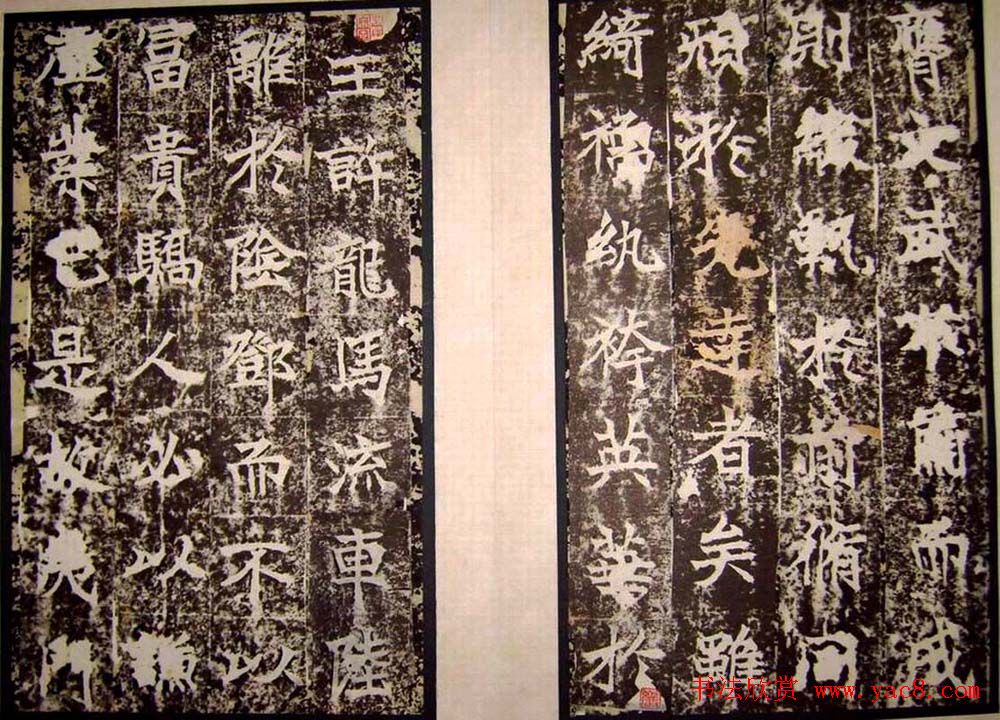 膺文武不肅而成
則綴軌於前脩同
於先達者矣雖
綺襦紈袴英華於
王許龍馬流車陸
離於陰鄧而不以
富貴驕人必以謙
虛業已是故夷門
书法欣赏 www.yac8.com